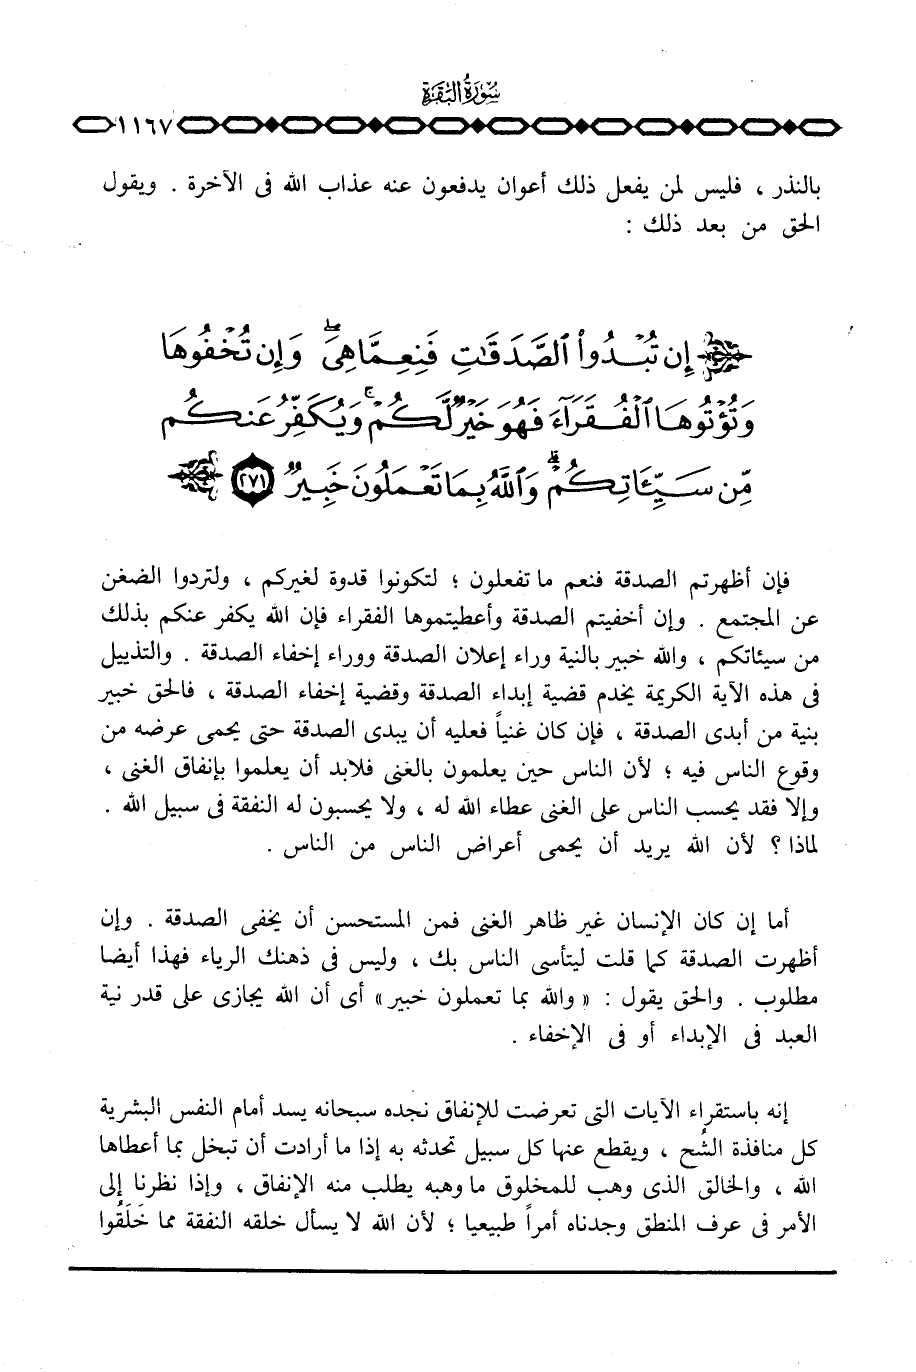 سُورَةُ البَقَرَةِ
١١٦٧
بالنذر ، فليس لمن يفعل ذلك أعوان يدفعون عنه عذاب الله فى الآخرة . ويقول
الحق من بعد ذلك :
إِن تُبْدُوا۟ ٱلصَّدَقَٰتِ فَنِعِمَّا هِىَ ۖ وَإِن تُخْفُوهَا
وَتُؤْتُوهَا ٱلْفُقَرَآءَ فَهُوَ خَيْرٌ لَّكُمْ ۚ وَيُكَفِّرُ عَنكُم
مِّن سَيِّـَٔاتِكُمْ ۗ وَٱللَّهُ بِمَا تَعْمَلُونَ خَبِيرٌ ٢٧١
فإن أظهرتم الصدقة فنعم ما تفعلون ؛ لتكونوا قدوة لغيركم ، ولتردوا الضغن
عن المجتمع . وإن أخفيتم الصدقة وأعطيتموها الفقراء فإن الله يكفر عنكم بذلك
من سيئاتكم ، والله خبير بالنية وراء إعلان الصدقة ووراء إخفاء الصدقة . والتذييل
فى هذه الآية الكريمة يخدم قضية إبداء الصدقة وقضية إخفاء الصدقة ، فالحق خبير
بنية من أبدى الصدقة ، فإن كان غنياً فعليه أن يبدى الصدقة حتى يحمى عرضه من
وقوع الناس فيه ؛ لأن الناس حين يعلمون بالغنى فلابد أن يعلموا بإنفاق الغنى ،
وإلا فقد يحسب الناس على الغنى عطاء الله له ، ولا يحسبون له النفقة فى سبيل الله .
لماذا ؟ لأن الله يريد أن يحمى أعراض الناس من الناس .
أما إن كان الإنسان غير ظاهر الغنى فمن المستحسن أن يخفى الصدقة . وإن
أظهرت الصدقة كما قلت ليتأسى الناس بك ، وليس فى ذهنك الرياء فهذا أيضا
مطلوب . والحق يقول : « والله بما تعملون خبير » أى أن الله يجازى على قدر نية
العبد فى الإبداء أو فى الإخفاء .
إنه باستقراء الآيات التى تعرضت للإنفاق نجده سبحانه يسد أمام النفس البشرية
كل منافذة الشُح ، ويقطع عنها كل سبيل تحدثه به إذا ما أرادت أن تبخل بما أعطاها
الله ، والخالق الذى وهب للمخلوق ما وهبه يطلب منه الإنفاق ، وإذا نظرنا إلى
الأمر فى عرف المنطق وجدناه أمراً طبيعيا ؛ لأن الله لا يسأل خلقه النفقة مما خَلَقُوا